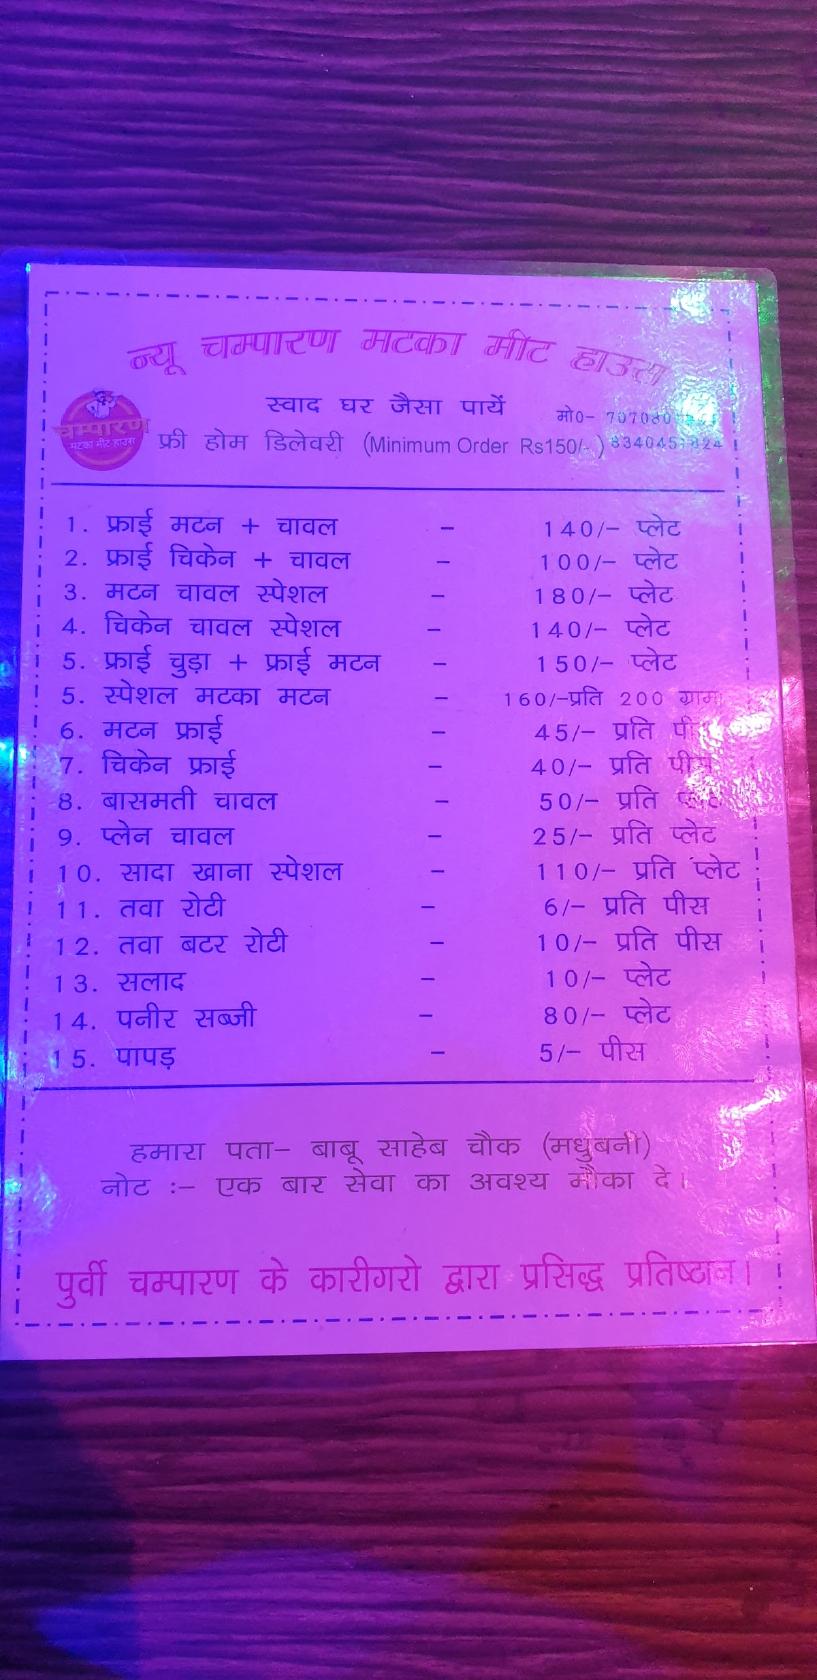 न्यू चम्पारण मटका मीट हाउस
स्वाद घर जैसा पायें
मो0-
चम्पारण
मटका मीट हाउस
फ्री होम डिलेवरी (Minimum Order Rs150/-)
1. फ्राई मटन + चावल - 140/- प्लेट
2. फ्राई चिकेन + चावल - 100/- प्लेट
3. मटन चावल स्पेशल - 180/- प्लेट
4. चिकेन चावल स्पेशल - 140/- प्लेट
5. फ्राई चुड़ा + फ्राई मटन - 150/- प्लेट
5. स्पेशल मटका मटन - 160/-प्रति 200 ग्राम
6. मटन फ्राई - 45/- प्रति
7. चिकेन फ्राई - 40/- प्रति पीस
8. बासमती चावल - 50/- प्रति
9. प्लेन चावल - 25/- प्रति प्लेट
10. सादा खाना स्पेशल - 110/- प्रति प्लेट
11. तवा रोटी - 6/- प्रति पीस
12. तवा बटर रोटी - 10/- प्रति पीस
13. सलाद - 10/- प्लेट
14. पनीर सब्जी - 80/- प्लेट
15. पापड़ - 5/- पीस
हमारा पता- बाबू साहेब चौक (मधुबनी)
नोट :- एक बार सेवा का अवश्य मौका दे।
पुर्वी चम्पारण के कारीगरो द्वारा प्रसिद्ध प्रतिष्ठान।